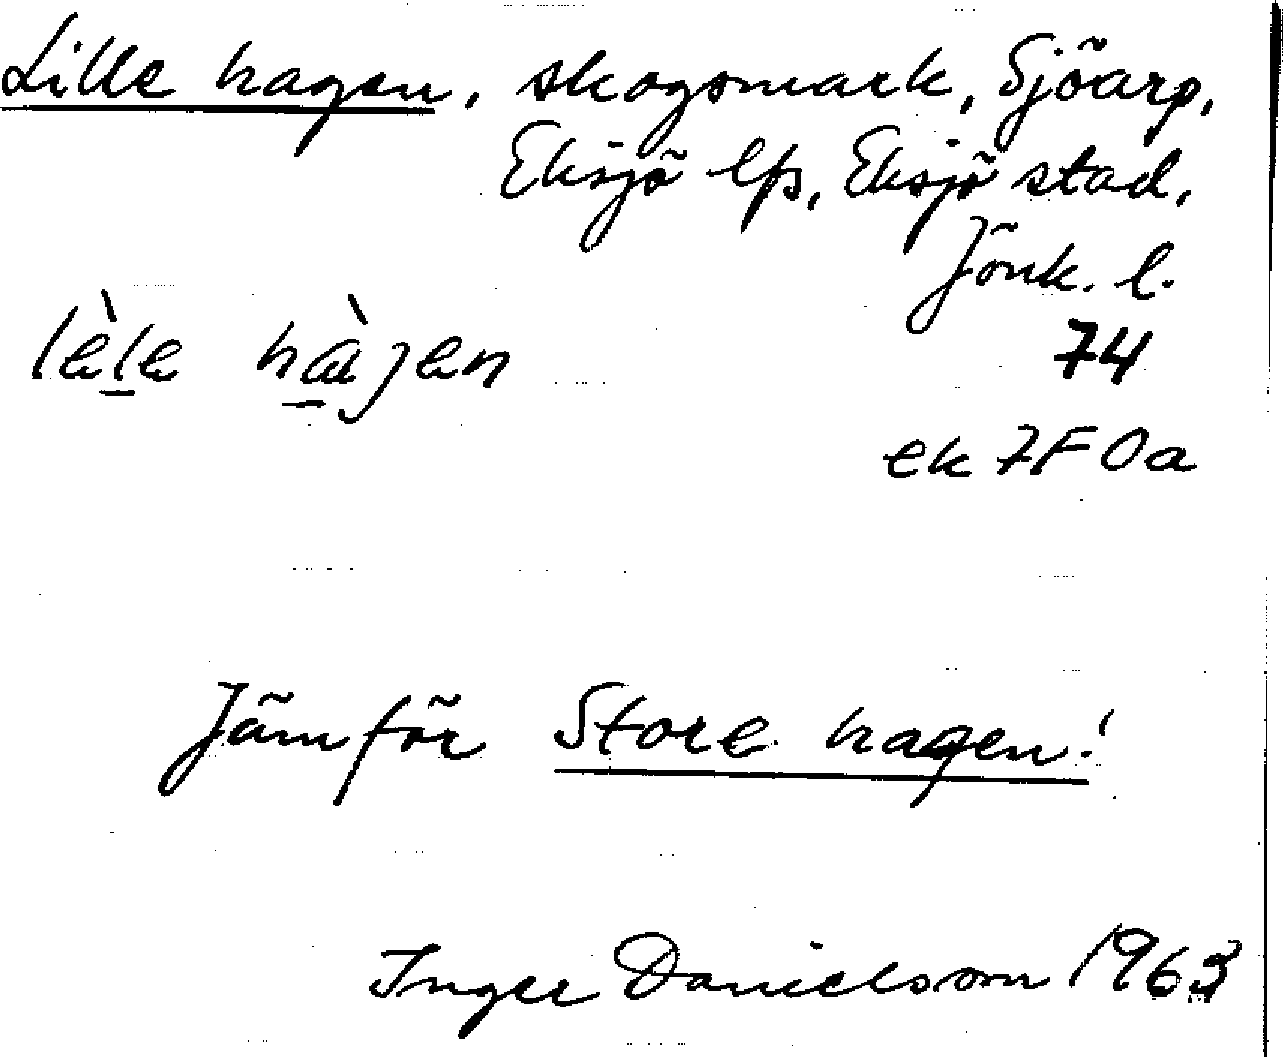 Lille hagen, skogsmark, Sjöarp,
Eksjö lfs, Eksjö stad,
Jönk. l.
lèl̲e hà̲jen 74
ek 7F 0a
Jämför Store hagen!
Inger Danielsson 1963